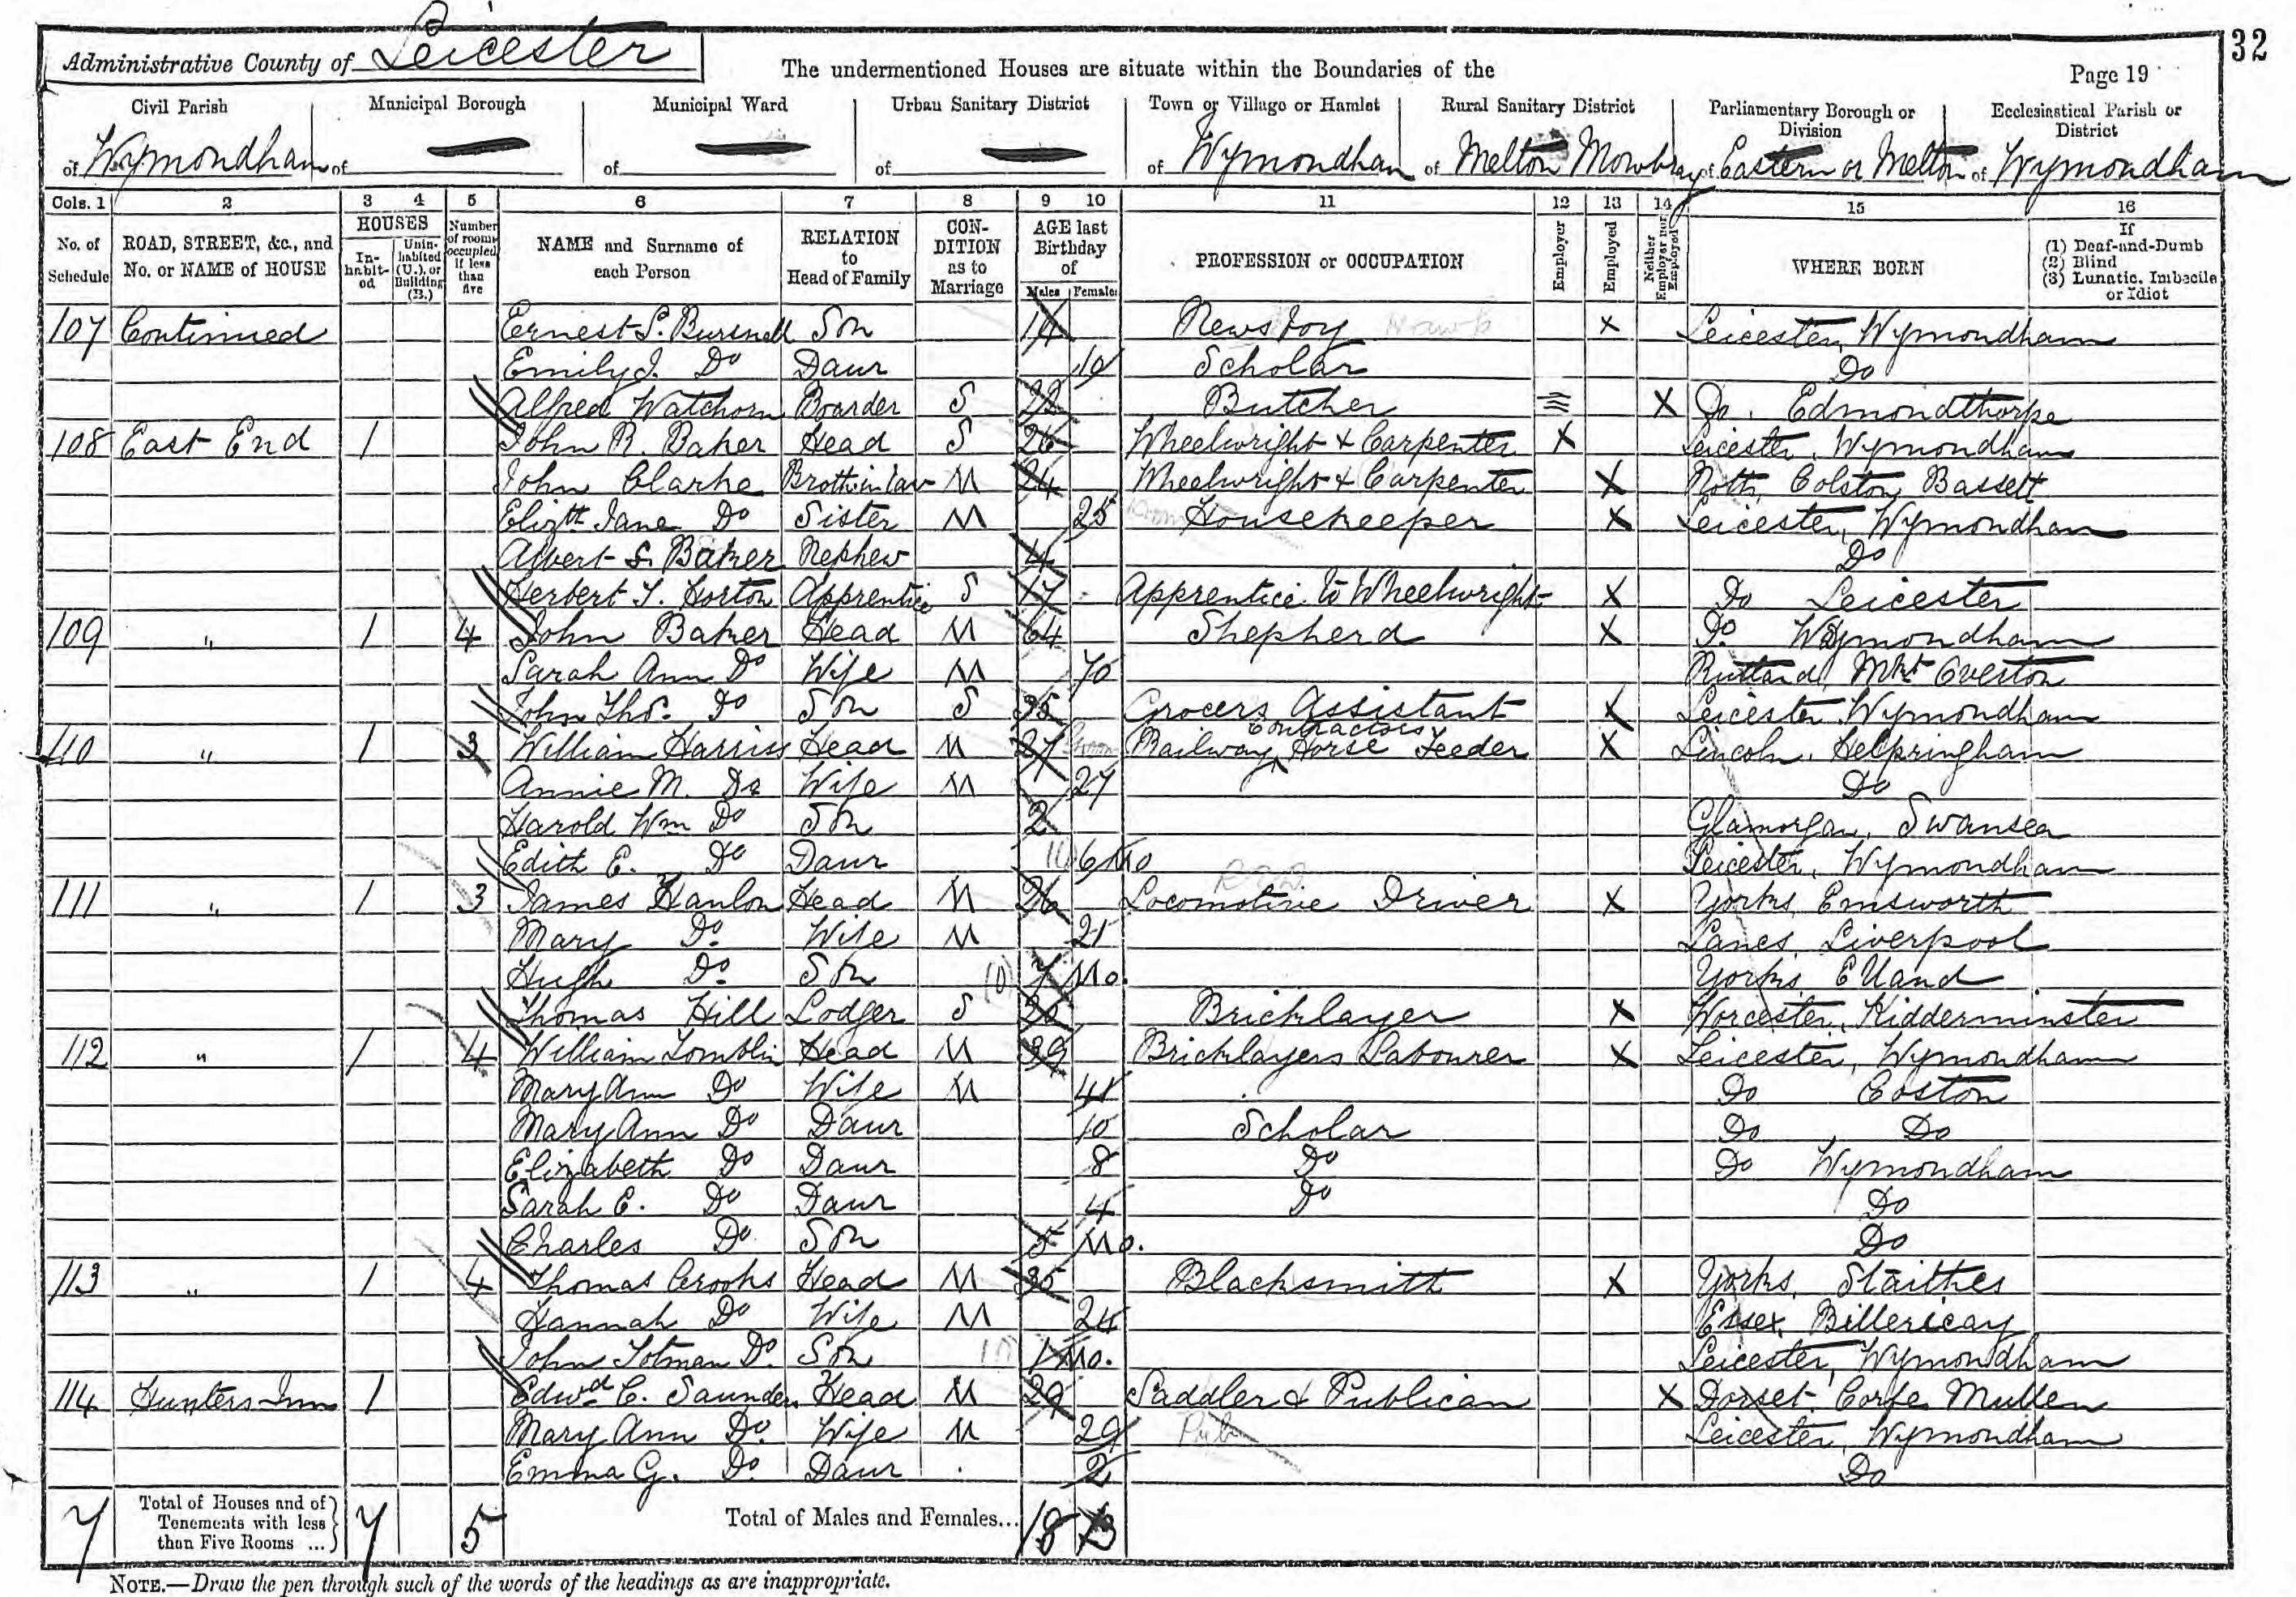 32
Administrative County of Leicester
The undermentioned Houses are situate within the Boundaries of the
Page 19
Civil Parish Municipal Borough Municipal Ward Urban Sanitary District Town or Village or Hamlet Rural Sanitary District Parliamentary Borough or Division Ecclesiastical Parish or District
of Wymondham of of of of Wymondham of Melton Mowbray of Eastern or Melton of Wymondham
Cols. 1 2 3 4 5 6 7 8 9 10 11 12 13 14 15 16
No. of Schedule ROAD, STREET, &c., and No. or NAME of HOUSE HOUSES Inhabited Uninhabited (U.), or Building (B.) Number of rooms occupied if less than five NAME and Surname of each Person RELATION to Head of Family CONDITION as to Marriage AGE last Birthday of Males Females PROFESSION or OCCUPATION Employer Employed Neither Employer nor Employed WHERE BORN If (1) Deaf-and-Dumb (2) Blind (3) Lunatic, Imbecile or Idiot
107 Continued Ernest S. Bursnell Son 14 Newsboy X Leicester, Wymondham
Emily J. Do Daur 10 Scholar Do
Alfred Watchorn Boarder S 22 Butcher X Do. Edmondthorpe
108 East End 1 John R. Baker Head S 26 Wheelwright & Carpenter X Leicester, Wymondham
John Clarke Broth in law M 24 Wheelwright & Carpenter X Notts, Colston Bassett
Elizth Jane Do Sister M 25 Housekeeper X Leicester, Wymondham
Albert S. Baker Nephew 4 Do
Herbert T. Horton Apprentice S 17 Apprentice to Wheelwright X Do Leicester
109 " 1 4 John Baker Head M 64 Shepherd X Do Wymondham
Sarah Ann Do Wife M 70 Rutland, Mkt Overton
John Thos. Do Son S 35 Grocers Assistant X Leicester Wymondham
110 " 1 3 William Harriss Head M 27 Railway Contractors Horse Feeder X Lincoln, Helpringham
Annie M. Do Wife M 27 Do
Harold Wm Do Son 2 Glamorgan, Swansea
Edith E. Do Daur 6 Mo Leicester, Wymondham
111 " 1 3 James Hanlon Head M 26 Locomotive Driver X Yorks, Emsworth
Mary Do. Wife M 21 Lancs, Liverpool
Hugh Do. Son 7 Mo. Yorks Elland
Thomas Hill Lodger S Bricklayer X Worcester, Kidderminster
112 " 1 4 William Tomblin Head M 39 Bricklayers Labourer X Leicester, Wymondham
Mary Ann Do Wife M 41 Do Coston
Mary Ann Do Daur 10 Scholar Do Do
Elizabeth Do Daur 8 Do Do Wymondham
Sarah E. Do Daur 4 Do Do
Charles Do Son 5 Mo. Do
113 " 1 4 Thomas Crooks Head M 35 Blacksmith X Yorks, Staithes
Hannah Do Wife M 24 Essex, Billericay
John Totman Do. Son 1 Mo. Leicester, Wymondham
114 Hunters Inn 1 Edwd C. Saunders Head M 29 Saddler & Publican X Dorset Corfe Mullen
Mary Ann Do. Wife M 29 Pub Leicester, Wymondham
Emma G. Do. Daur 2 Do
7 Total of Houses and of Tenements with less than Five Rooms ... 7 5 Total of Males and Females... 18 13
NOTE.—Draw the pen through such of the words of the headings as are inappropriate.